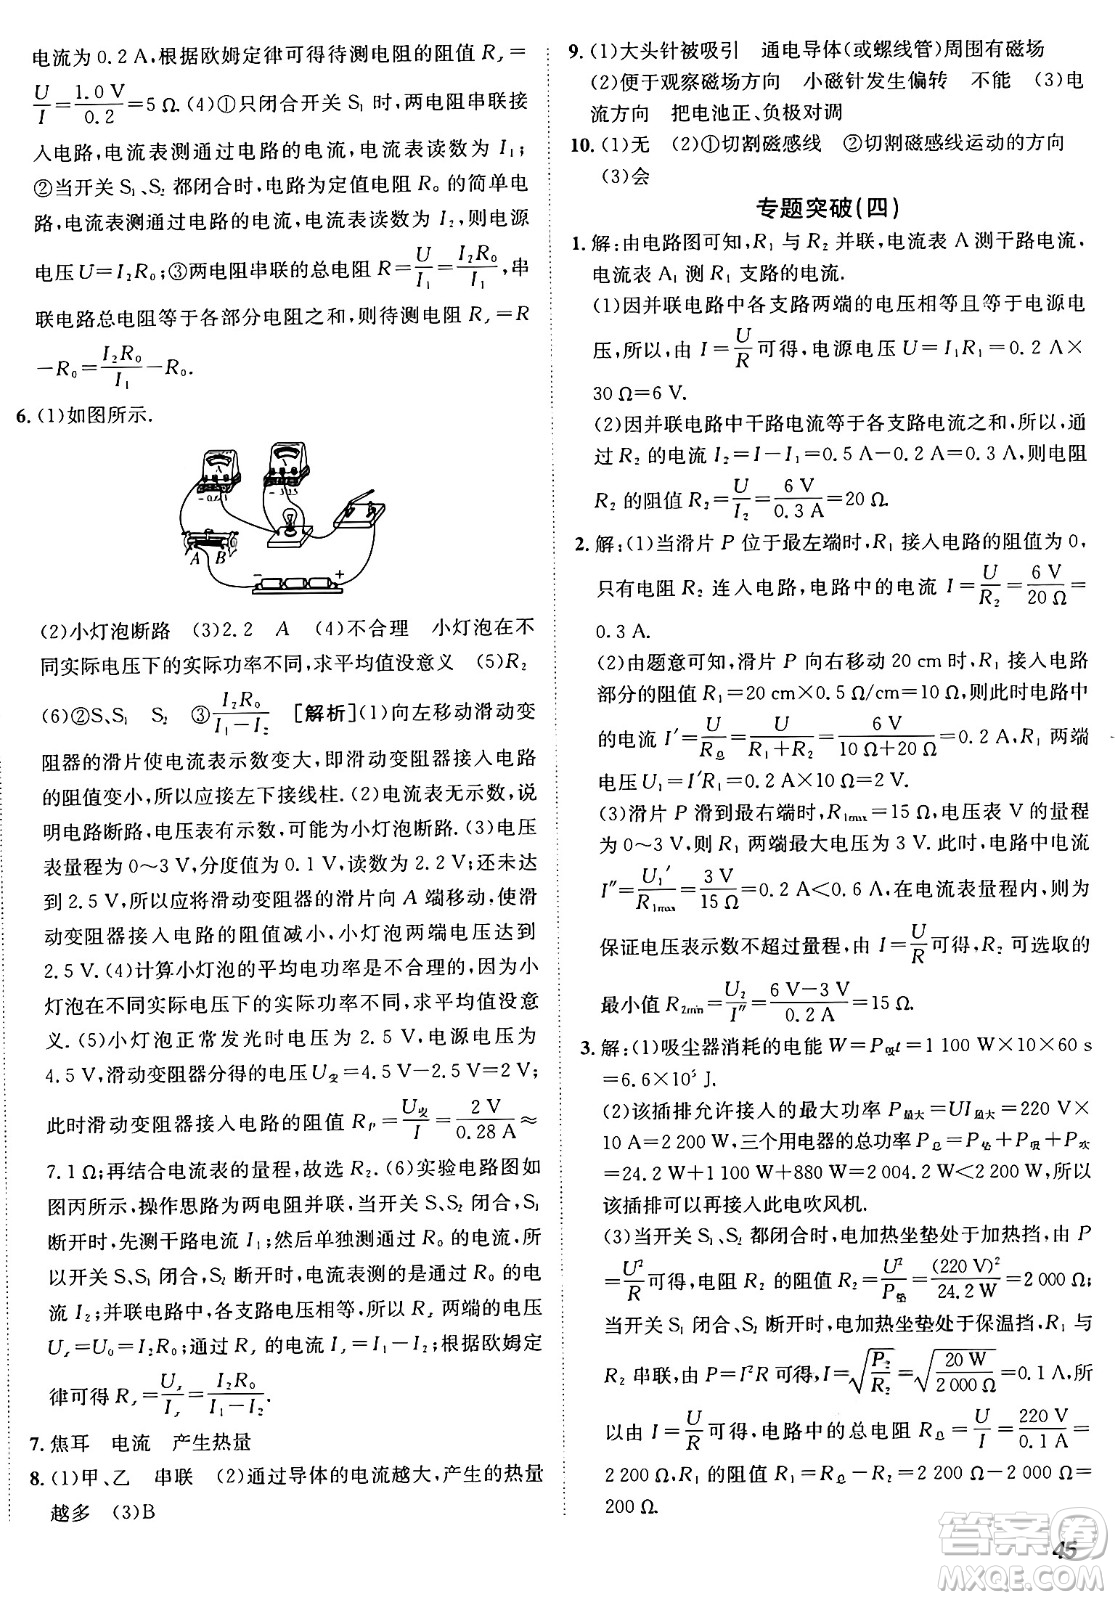 电流为0.2 A,根据欧姆定律可得待测电阻的阻值 Rₓ=
U/I=1.0 V/0.2=5 Ω.(4)①只闭合开关 S₁ 时,两电阻串联接
入电路,电流表测通过电路的电流,电流表读数为 I₁;
②当开关 S₁、S₂ 都闭合时,电路为定值电阻 R₀ 的简单电
路,电流表测通过电路的电流,电流表读数为 I₂,则电源
电压 U=I₂R₀;③两电阻串联的总电阻 R=U/I₁=I₂R₀/I₁,串
联电路总电阻等于各部分电阻之和,则待测电阻 Rₓ=R
-R₀=I₂R₀/I₁-R₀.
6.(1)如图所示.
A
- 0.6 3
- 3 15
A B
- +
(2)小灯泡断路 (3)2.2 A (4)不合理 小灯泡在不
同实际电压下的实际功率不同,求平均值没意义 (5)R₂
(6)②S、S₁ S₂ ③I₂R₀/(I₁-I₂) [解析](1)向左移动滑动变
阻器的滑片使电流表示数变大,即滑动变阻器接入电路
的阻值变小,所以应接左下接线柱.(2)电流表无示数,说
明电路断路,电压表有示数,可能为小灯泡断路.(3)电压
表量程为0~3 V,分度值为0.1 V,读数为2.2 V;还未达
到2.5 V,所以应将滑动变阻器的滑片向 A 端移动,使滑
动变阻器接入电路的阻值减小,小灯泡两端电压达到
2.5 V.(4)计算小灯泡的平均电功率是不合理的,因为小
灯泡在不同实际电压下的实际功率不同,求平均值没意
义.(5)小灯泡正常发光时电压为2.5 V,电源电压为
4.5 V,滑动变阻器分得的电压U变=4.5 V-2.5 V=2 V,
此时滑动变阻器接入电路的阻值 RP=U变/I=2 V/0.28 A≈
7.1 Ω;再结合电流表的量程,故选 R₂.(6)实验电路图如
图丙所示,操作思路为两电阻并联,当开关 S、S₂ 闭合,S₁
断开时,先测干路电流 I₁;然后单独测通过 R₀ 的电流,所
以开关 S、S₁ 闭合,S₂ 断开时,电流表测的是通过 R₀ 的电
流 I₂;并联电路中,各支路电压相等,所以 Rₓ 两端的电压
Uₓ=U₀=I₂R₀;通过 Rₓ 的电流 Iₓ=I₁-I₂;根据欧姆定
律可得 Rₓ=Uₓ/Iₓ=I₂R₀/(I₁-I₂).
7.焦耳 电流 产生热量
8.(1)甲、乙 串联 (2)通过导体的电流越大,产生的热量
越多 (3)B
9.(1)大头针被吸引 通电导体(或螺线管)周围有磁场
(2)便于观察磁场方向 小磁针发生偏转 不能 (3)电
流方向 把电池正、负极对调
10.(1)无 (2)①切割磁感线 ②切割磁感线运动的方向
(3)会
专题突破(四)
1.解:由电路图可知,R₁ 与 R₂ 并联,电流表 A 测干路电流,
电流表 A₁ 测 R₁ 支路的电流.
(1)因并联电路中各支路两端的电压相等且等于电源电
压,所以,由 I=U/R可得,电源电压 U=I₁R₁=0.2 A×
30 Ω=6 V.
(2)因并联电路中干路电流等于各支路电流之和,所以,通
过 R₂ 的电流 I₂=I-I₁=0.5 A-0.2 A=0.3 A,则电阻
R₂ 的阻值 R₂=U/I₂=6 V/0.3 A=20 Ω.
2.解:(1)当滑片 P 位于最左端时,R₁ 接入电路的阻值为0,
只有电阻 R₂ 连入电路,电路中的电流 I=U/R₂=6 V/20 Ω=
0.3 A.
(2)由题意可知,滑片 P 向右移动20 cm时,R₁ 接入电路
部分的阻值 R₁=20 cm×0.5 Ω/cm=10 Ω,则此时电路中
的电流 I′=U/R总=U/(R₁+R₂)=6 V/(10 Ω+20 Ω)=0.2 A,R₁ 两端
电压 U₁=I′R₁=0.2 A×10 Ω=2 V.
(3)滑片 P 滑到最右端时,R₁max=15 Ω,电压表 V 的量程
为0~3 V,则 R₁ 两端最大电压为3 V.此时,电路中电流
I″=U₁′/R₁max=3 V/15 Ω=0.2 A<0.6 A,在电流表量程内,则为
保证电压表示数不超过量程,由 I=U/R可得,R₂ 可选取的
最小值 R₂min=U₂/I″=(6 V-3 V)/0.2 A=15 Ω.
3.解:(1)吸尘器消耗的电能 W=P吸t=1 100 W×10×60 s
=6.6×10⁵ J.
(2)该插排允许接入的最大功率 P最大=UI最大=220 V×
10 A=2 200 W,三个用电器的总功率 P总=P垫+P吸+P水
=24.2 W+1 100 W+880 W=2 004.2 W<2 200 W,所以
该插排可以再接入此电吹风机.
(3)当开关 S₁、S₂ 都闭合时,电加热坐垫处于加热挡,由 P
=U²/R可得,电阻 R₂ 的阻值 R₂=U²/P垫=(220 V)²/24.2 W=2 000 Ω;
当开关 S₁ 闭合、S₂ 断开时,电加热坐垫处于保温挡,R₁ 与
R₂ 串联,由 P=I²R 可得,I=√(P₂/R₂)=√(20 W/2 000 Ω)=0.1 A,所
以由 I=U/R可得,电路中的总电阻 R总=U/I=220 V/0.1 A=
2 200 Ω,则电阻 R₁=R总-R₂=2 200 Ω-2 000 Ω=
200 Ω.
45
答案圈
MXQE.COM